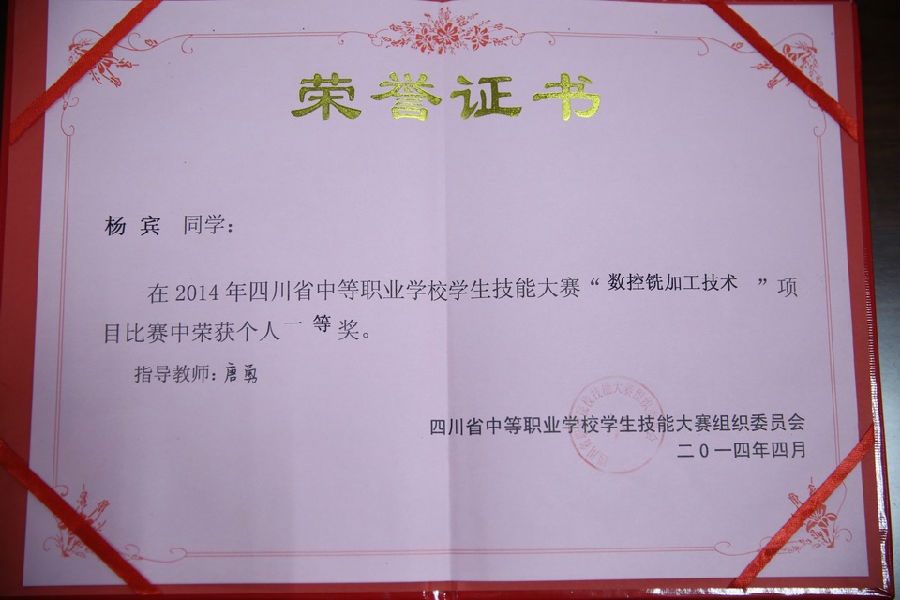 荣誉证书
杨宾 同学：
在2014年四川省中等职业学校学生技能大赛“数控铣加工技术”项
目比赛中荣获个人一等奖。
指导教师：唐勇
四川省中等职业学校学生技能大赛组织委员会
二0一四年四月